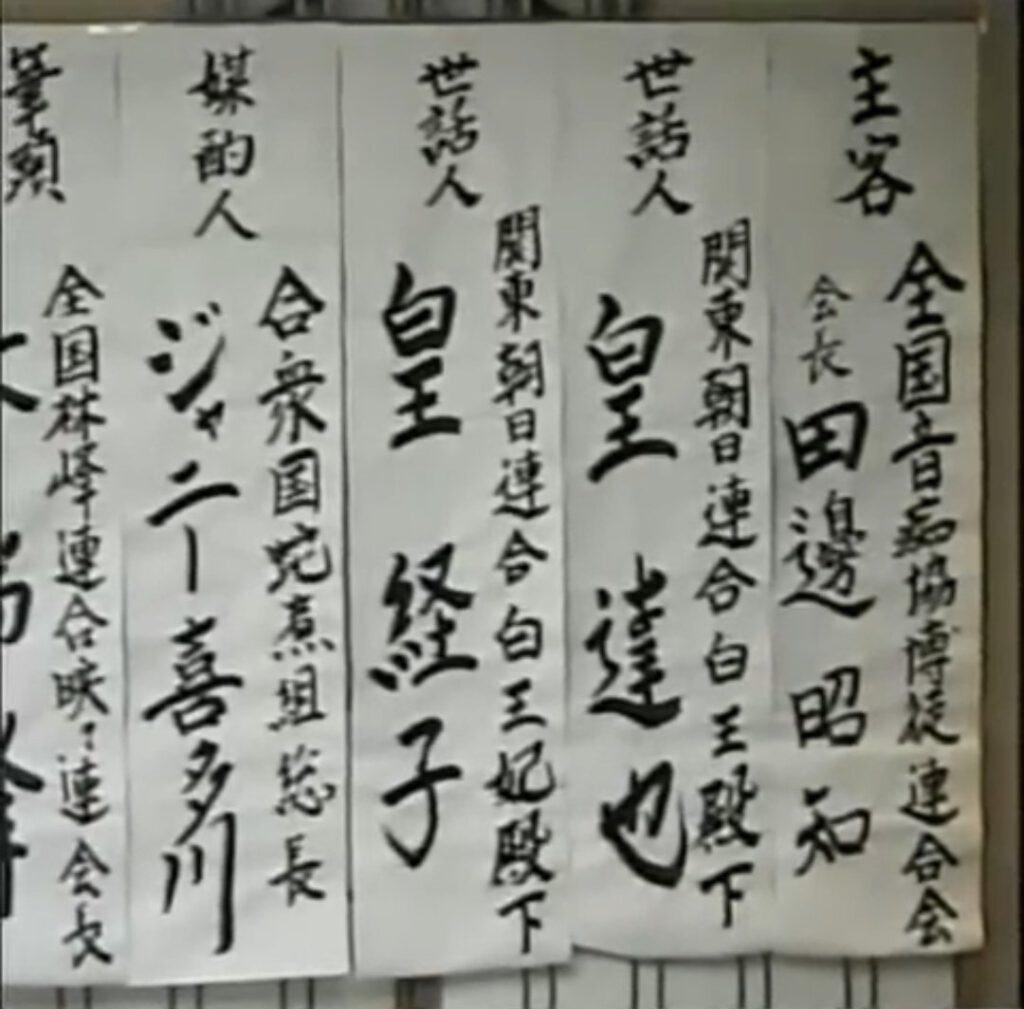 主客
全国音痴協博徒連合会
会長 田邊昭知
世話人
関東朝日連合白王殿下
皇達也
世話人
関東朝日連合白王妃殿下
皇経子
媒酌人
合衆国蛇煮組総長
ジャニー喜多川
筆頭
全国林峰連合映々連会長